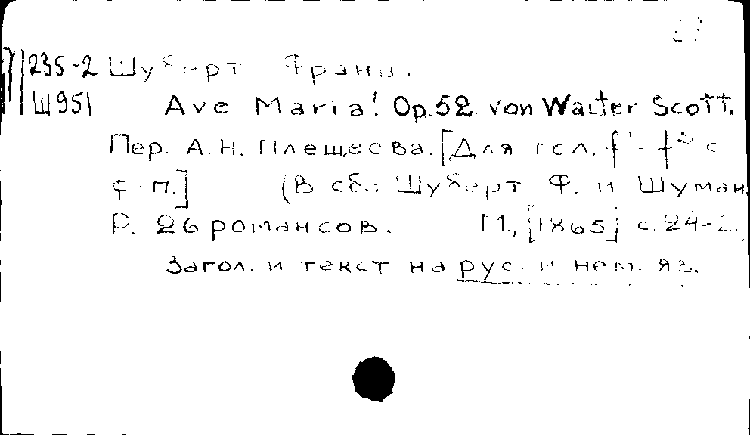 235-2 Шуберт Франц.
Ш951 Ave Maria! Op.52 von Walter Scott.
Пер. А.Н. Плещеева. [Для гсл. f¹-f² с
ф-п.] (В сб.: Шуберт Ф. и Шуман
Р. 26 романсов. М., [1865] с. 24-2
Загол. и текст на рус. и нем. яз.